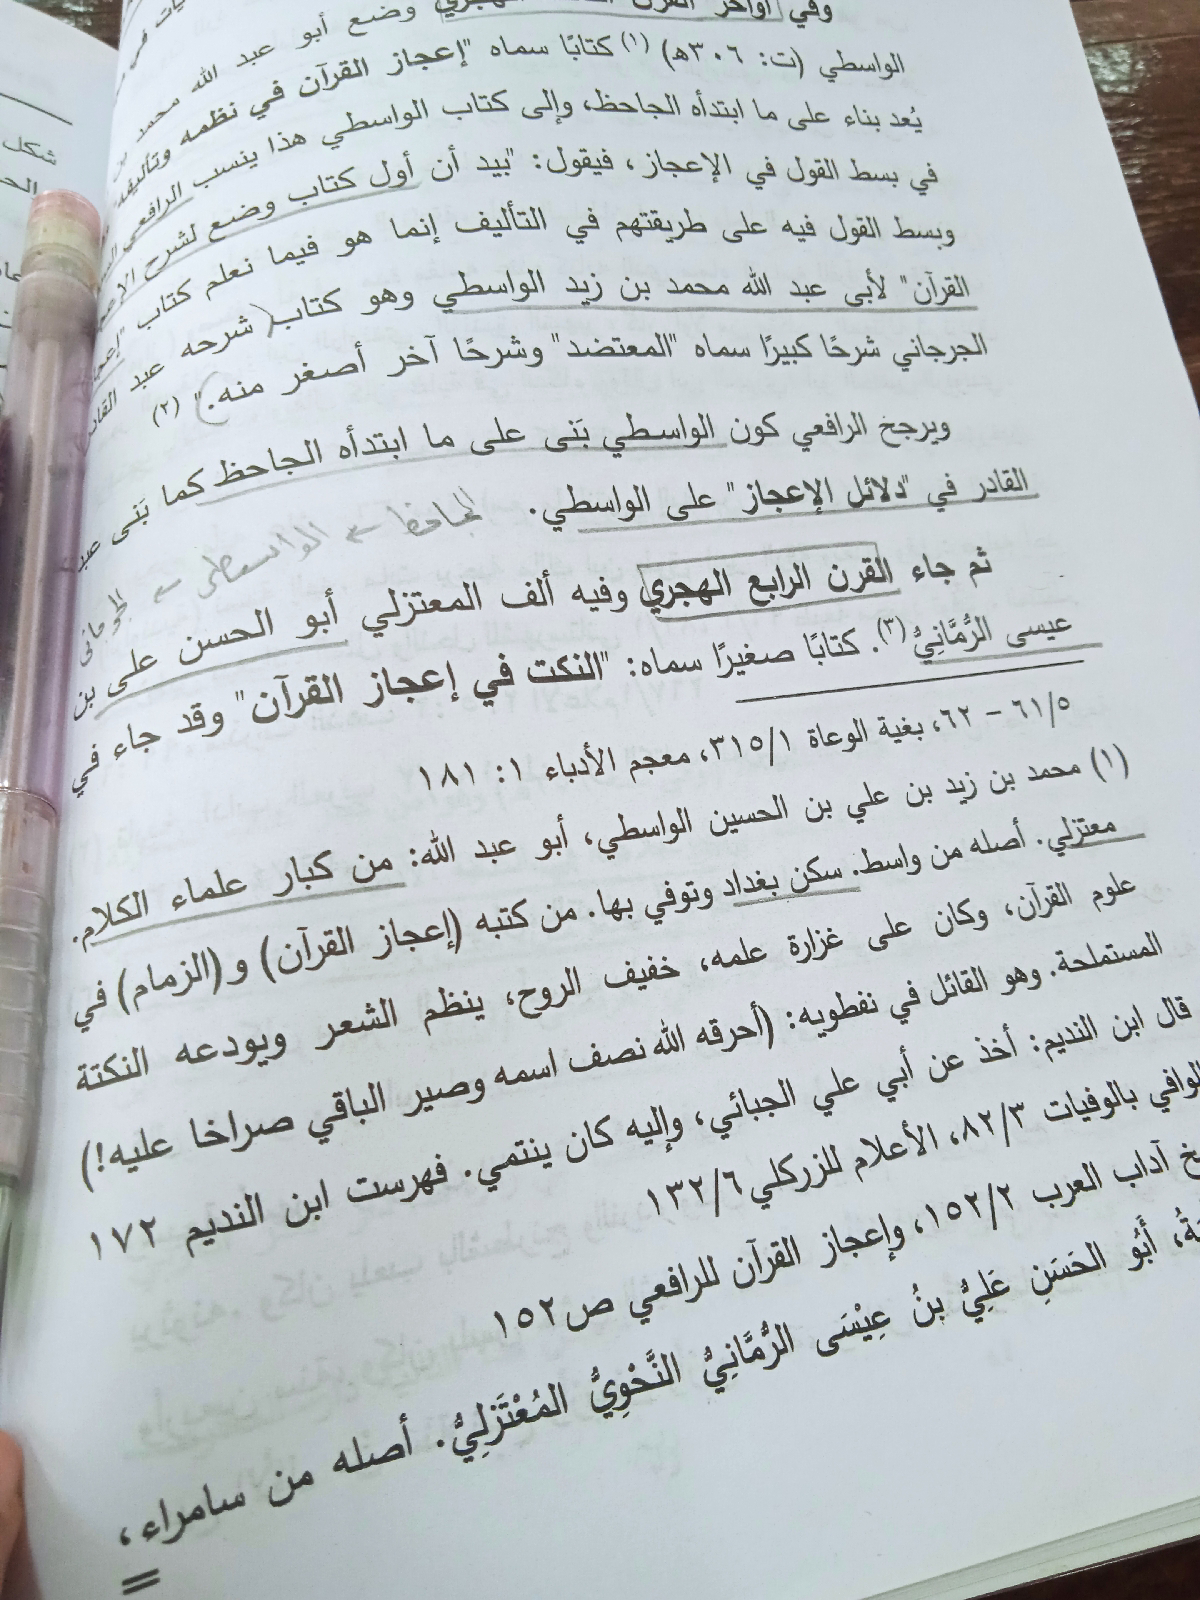 وفي أواخر القرن الهجري وضع أبو عبد الله محمد بن
الواسطي (ت: ٣٠٦هـ) (١) كتابًا سماه "إعجاز القرآن في نظمه وتأليفه"
يُعد بناء على ما ابتدأه الجاحظ، وإلى كتاب الواسطي هذا ينسب الرافعي
في بسط القول في الإعجاز، فيقول: "بيد أن أول كتاب وضع لشرح الإعجاز
وبسط القول فيه على طريقتهم في التأليف إنما هو فيما نعلم كتاب "إعجاز
القرآن" لأبى عبد الله محمد بن زيد الواسطي وهو كتاب شرحه عبد القاهر
الجرجاني شرحًا كبيرًا سماه "المعتضد" وشرحًا آخر أصغر منه." (٢)
ويرجح الرافعي كون الواسطي بَنى على ما ابتدأه الجاحظ كما بَنى عبد
القادر في "دلائل الإعجاز" على الواسطي.
الجاحظ ← الواسطي ← الجرجاني
ثم جاء القرن الرابع الهجري وفيه ألف المعتزلي أبو الحسن على بن
عيسى الرُّمَّانِيُّ (٣). كتابًا صغيرًا سماه: "النكت في إعجاز القرآن" وقد جاء في
٦١/٥ – ٦٢، بغية الوعاة ٣١٥/١، معجم الأدباء ١: ١٨١
(١) محمد بن زيد بن علي بن الحسين الواسطي، أبو عبد الله: من كبار علماء الكلام.
معتزلي. أصله من واسط. سكن بغداد وتوفي بها. من كتبه (إعجاز القرآن) و(الزمام) في
علوم القرآن، وكان على غزارة علمه، خفيف الروح، ينظم الشعر ويودعه النكتة
المستملحة. وهو القائل في نفطويه: (أحرقه الله نصف اسمه وصير الباقي صراخا عليه!)
قال ابن النديم: أخذ عن أبي علي الجبائي، وإليه كان ينتمي. فهرست ابن النديم ١٧٢
الوافي بالوفيات ٨٢/٣، الأعلام للزركلي ١٣٢/٦
آداب العرب ١٥٢/٢، وإعجاز القرآن للرافعي ص١٥٢
أَبُو الحَسَنِ عَلِيُّ بنُ عِيْسَى الرُّمَّانِيُّ النَّحْوِيُّ المُعْتَزِلِيُّ. أصله من سامراء،
=
شكل